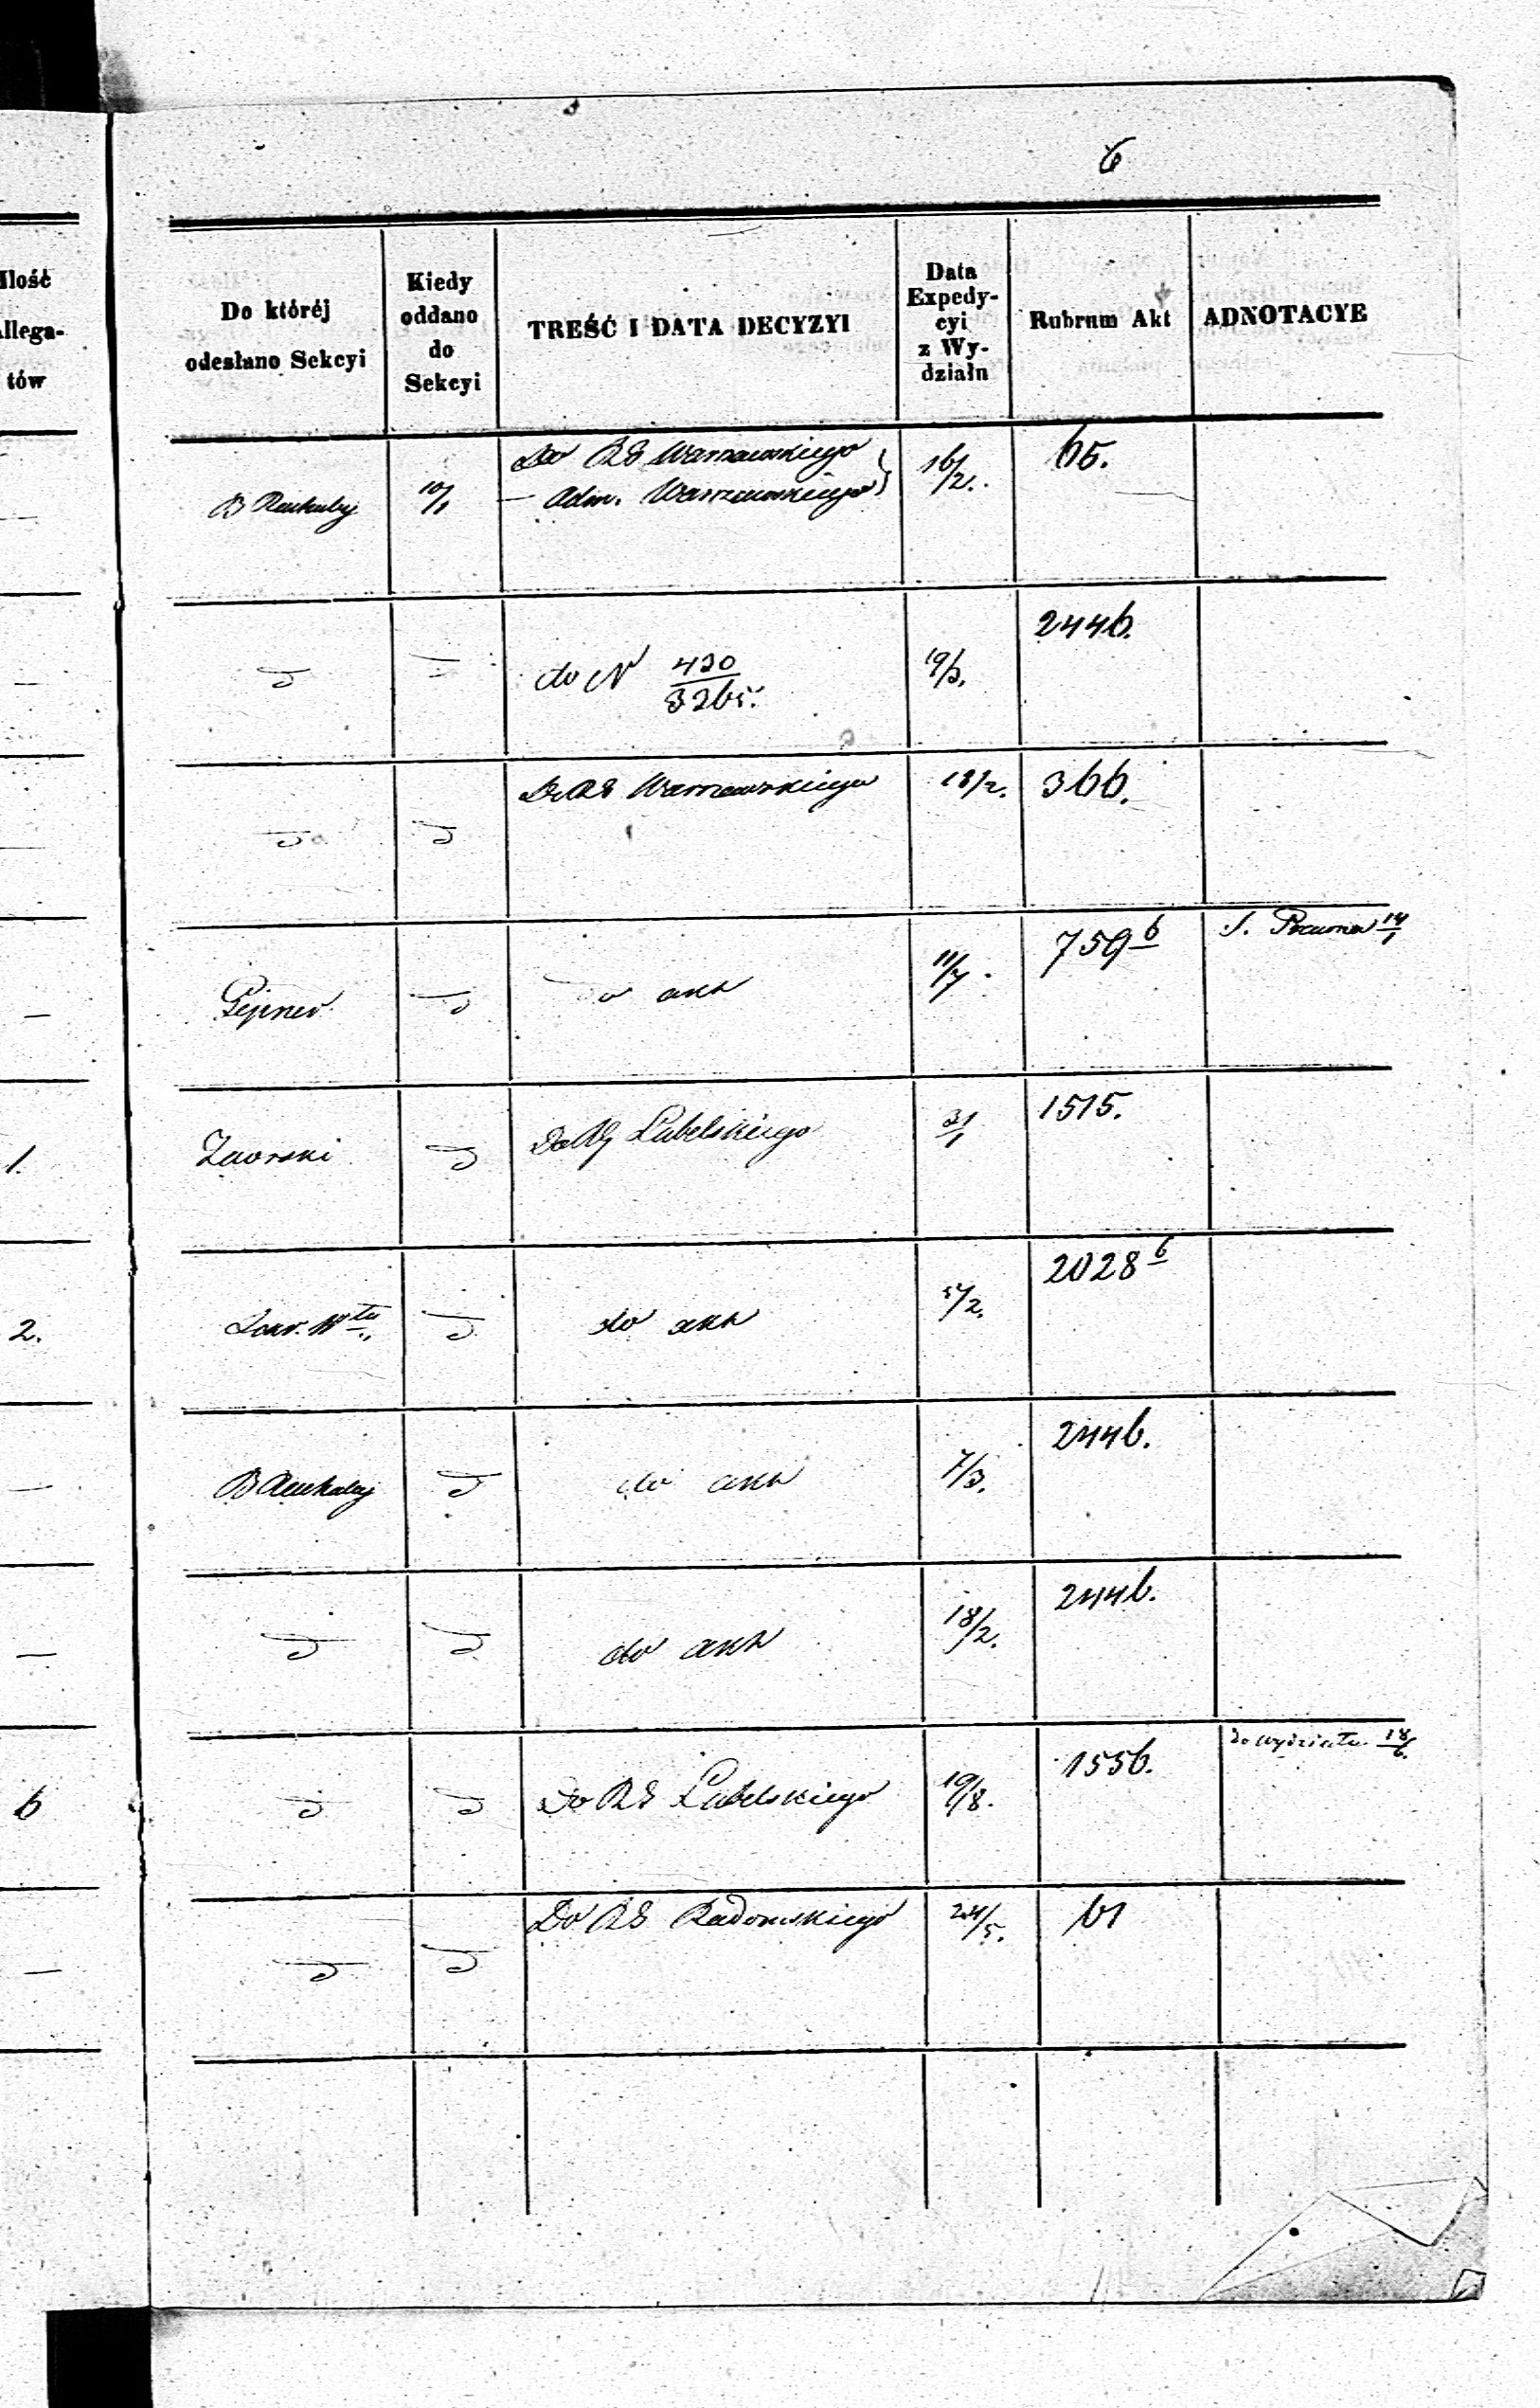 6
Ilość
Allega-
tów
Do któréj
odesłano Sekcyi
Kiedy
oddano
do
Sekcyi
TREŚĆ I DATA DECYZYI
Data
Expedy-
cyi
z Wy-
działu
Rubrum Akt
ADNOTACYE
—
B
10/1
Do RG Warszawskiego
— Adm. Warszawskiego
16/2.
65.
—
do N 420/3265.
19/3.
2446.
Do RG Warszawskiego
18/2.
366.
—
do akt
11/7.
759 6
14/1
1.
Zaorski
Do RG Lubelskiego
31/1
1515.
2.
do akt
5/2.
2028 6
—
B
do akt
7/3.
2446.
—
do akt
18/2.
2446.
6
Do RG Lubelskiego
19/8.
1556.
do Wydziału 18/6.
—
Do RG Radomskiego
24/5.
61